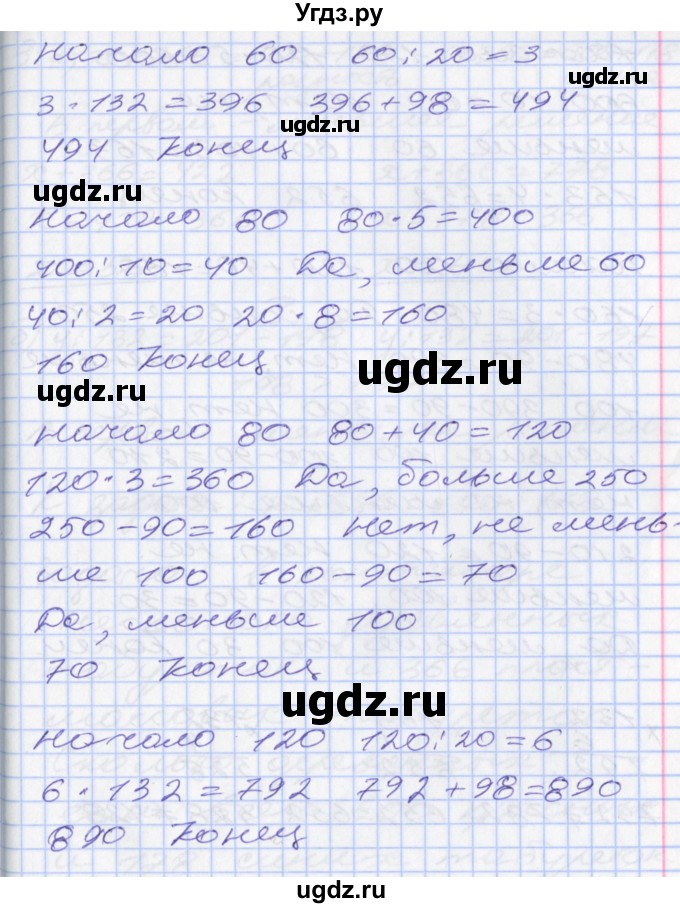 Угдз.ру
Начало 60 60:20=3
ugdz.ru
3·132=396 396+98=494
ugdz.ru
494 Конец
ugdz.ru
Начало 80 80·5=400
400:10=40 Да, меньше 60
40:2=20 20·8=160
160 Конец
ugdz.ru
ugdz.ru
Начало 80 80+40=120
120·3=360 Да, больше 250
250-90=160 Нет, не мень-
ше 100 160-90=70
Да, меньше 100
70 Конец
ugdz.ru
Начало 120 120:20=6
6·132=792 792+98=890
890 Конец
ugdz.ru